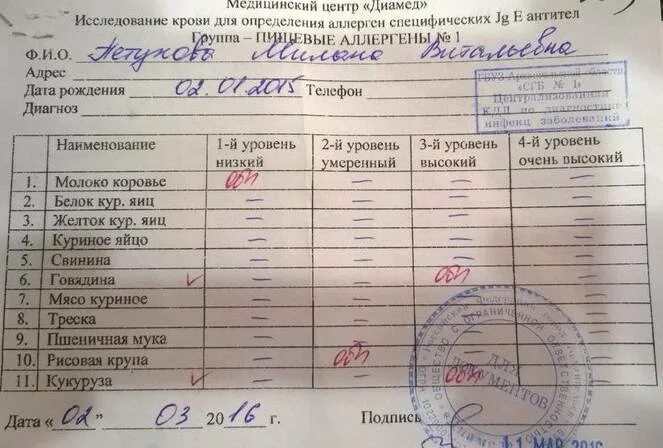 Медицинский центр «Диамед»
Исследование крови для определения аллерген специфических Jg E антител
Группа – ПИЩЕВЫЕ АЛЛЕРГЕНЫ № 1
Ф.И.О. Петухова Милана Витальевна
Адрес
Дата рождения 02.01.2015 Телефон
Диагноз
ГБУЗ Архангельской области
«СГБ № 1»
Централизованная
КДЛ по диагностике
инфекц заболеваний
Наименование 1-й уровень низкий 2-й уровень умеренный 3-й уровень высокий 4-й уровень очень высокий
1. Молоко коровье обн – – –
2. Белок кур. яиц – – – –
3. Желток кур. яиц – – – –
4. Куриное яйцо – – – –
5. Свинина – – – –
6. Говядина ✓ – – обн –
7. Мясо куриное – – – –
8. Треска – – – –
9. Пшеничная мука – – – –
10. Рисовая крупа – обн – –
11. Кукуруза ✓ – – обн –
Дата «02» 03 2016 г. Подпись
ДЛЯ ДОКУМЕНТОВ
11 МАР 2016